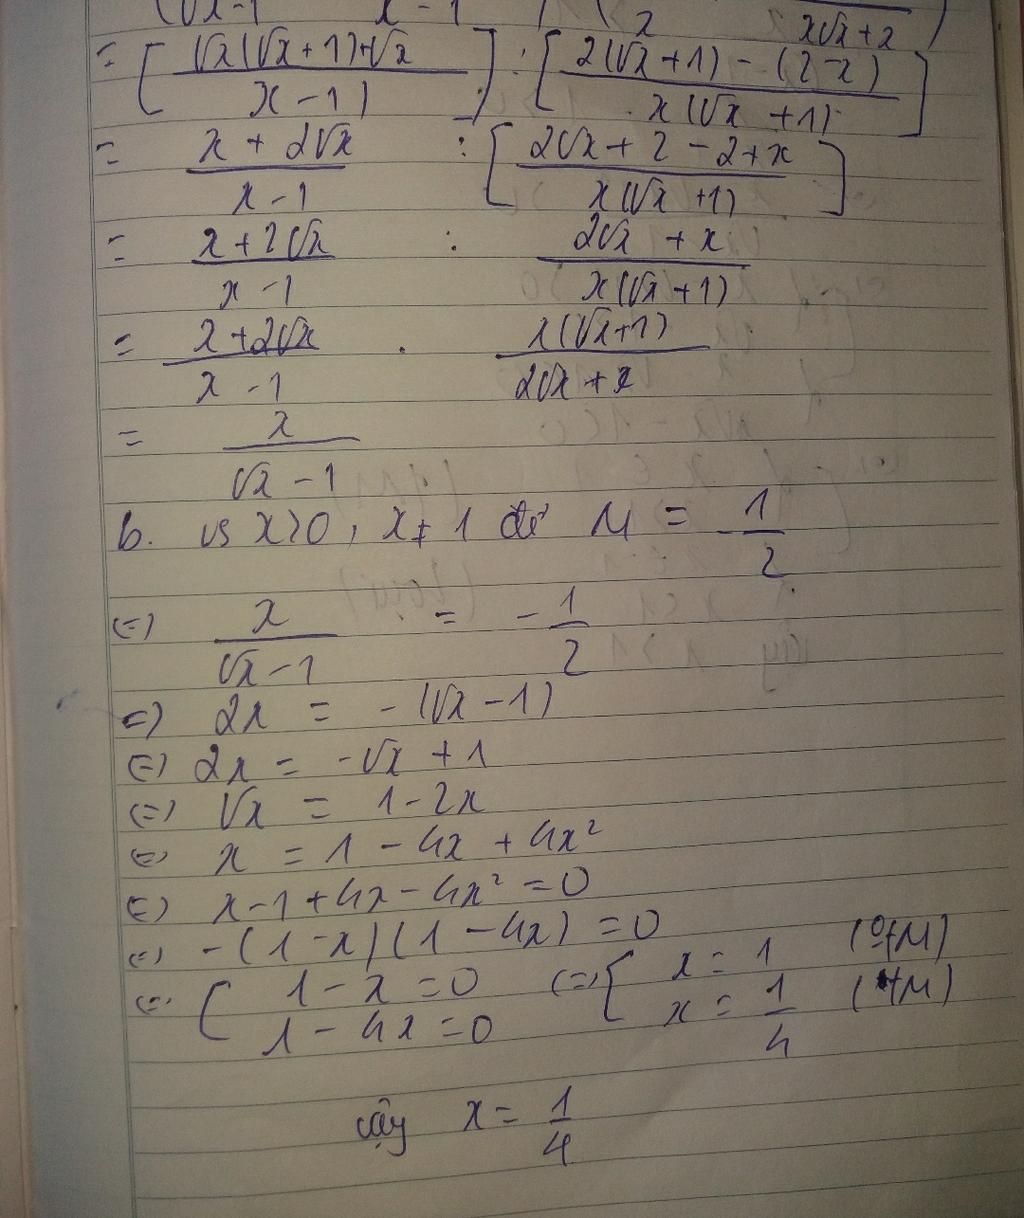 (√x-1 x-1 x x√x+x)
= [ (√x(√x+1)+√x) / (x-1) ] : [ (2(√x+1) - (2-x)) / (x(√x+1)) ]
= (x+2√x) / (x-1) : [ (2√x+2-2+x) / (x(√x+1)) ]
= (x+2√x) / (x-1) : (2√x+x) / (x(√x+1))
= (x+2√x) / (x-1) . (x(√x+1)) / (2√x+x)
= x / (√x-1)
b. vs x>0, x≠1 để M = -1/2
(=) x / (√x-1) = -1/2
=) 2x = -(√x-1)
(=) 2x = -√x+1
(=) √x = 1-2x
(=) x = 1-4x+4x²
(=) x-1+4x-4x²=0
(=) -(1-x)(1-4x)=0
(=) [ 1-x=0 (=) [ x=1 (0tM)
1-4x=0 x=1/4 (tM)
vậy x=1/4